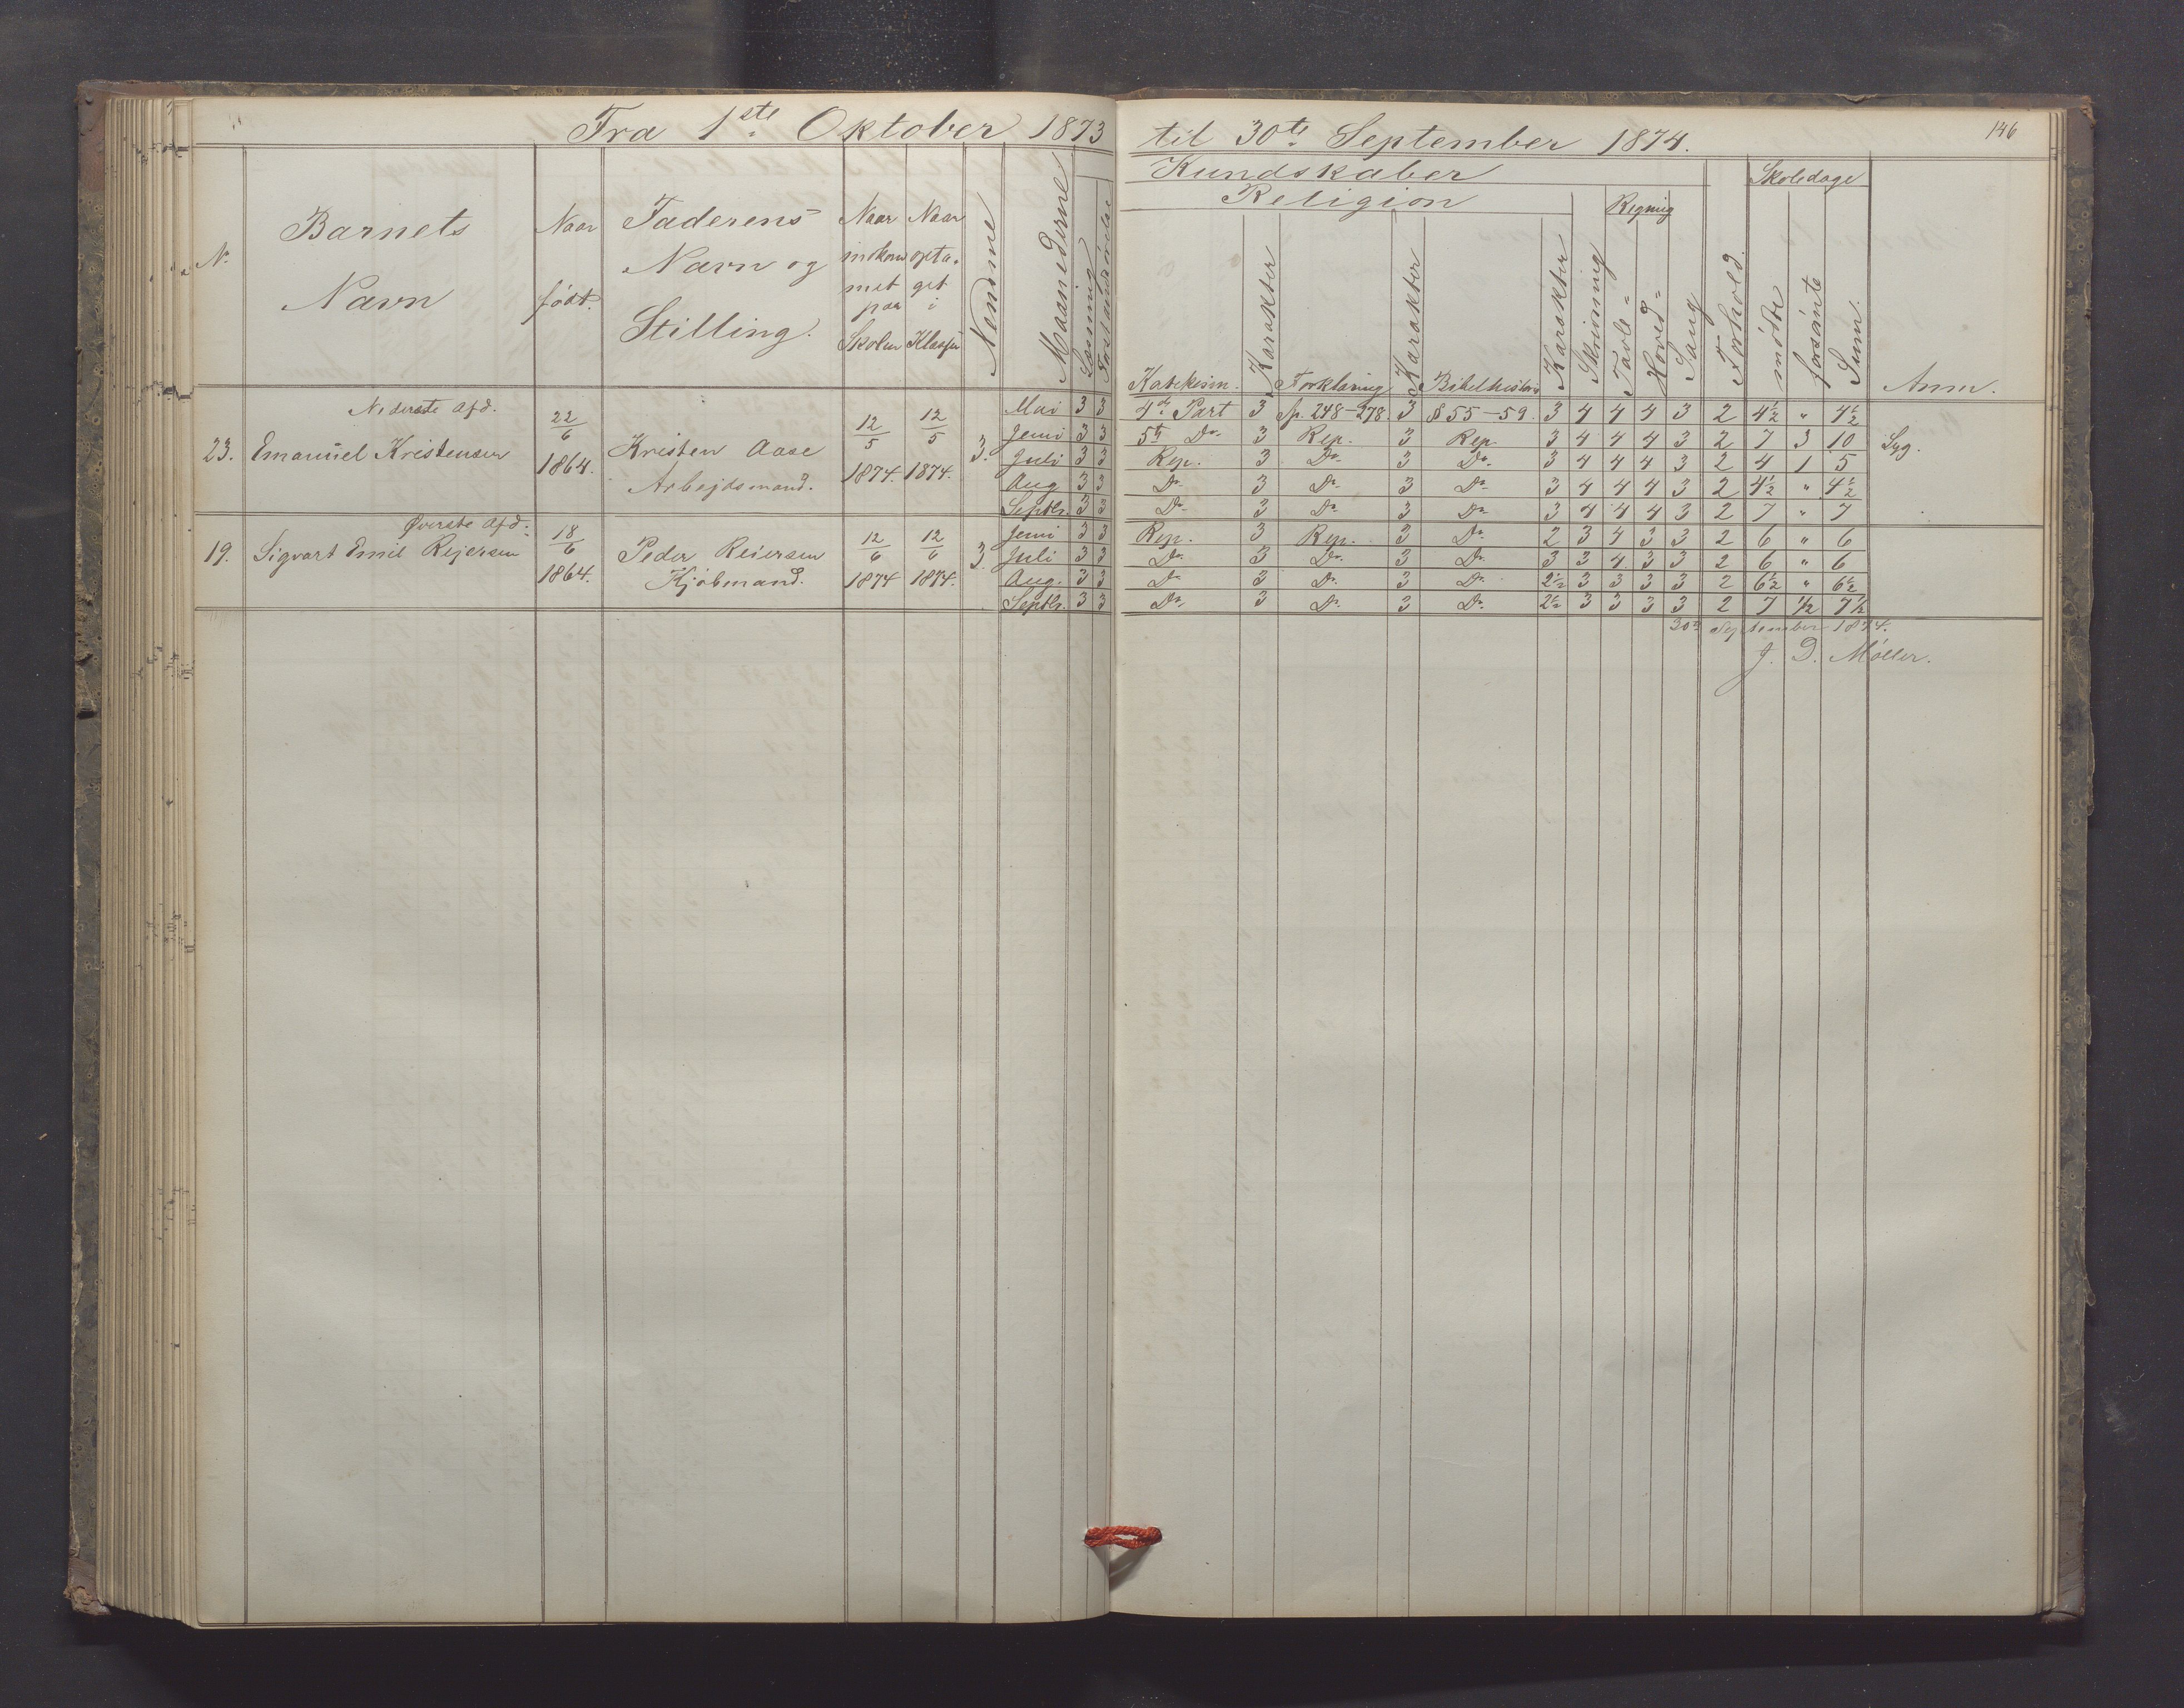 Fra 1ste Oktober 1873 til 30te September 1874.
146
Kundskaber
Religion
Regning
Skoledage
No
Barnets Navn
Naar født.
Faderens Navn og Stilling.
Naar indkommet paa Skolen
Naar optaget i Klassen
Nemme
Maanederne
Læsning
Forstandsøvelse
Katekism.
Karakter
Forklaring
Karakter
Bibelhistorie
Karakter
Skrivning
Tavle-
Hoved-
Sang
Forhold.
mødte
forsømte
Sum.
Anm.
Nederste Afd.
23. Emanuel Kristensen 22/6 1864. Kristen Aase Arbejdsmand. 12/5 1874. 12/5 1874. 3.
Mai 3 3 4de Part 3 Sp. 248-278. 3 § 55-59. 3 4 4 4 3 2 4½ " 4½
Juni 3 3 5te Do. 3 Rep. 3 Rep. 3 4 4 4 3 2 7 3 10 Syg.
Juli 3 3 Rep. 3 Do. 3 Do. 3 4 4 4 3 2 4 1 5
Aug 3 3 Do. 3 Do. 3 Do. 3 4 4 4 3 2 4½ " 4½
Septbr. 3 3 Do. 3 Do. 3 Do. 3 4 4 4 3 2 7 " 7
Øverste Afd.
19. Sigvart Emil Rejersen 18/6 1864. Peder Reiersen Kjøbmand. 12/6 1874 12/6 1874. 3.
Juni 3 3 Rep. 3 Rep. 3 Do. 2 3 4 3 3 2 6 " 6
Juli 3 3 Do. 3 Do. 3 Do. 3 3 4 3 3 2 6 " 6
Aug. 3 3 Do 3 Do. 3 Do. 2½ 3 3 3 3 2 6½ " 6½
Septbr. 3 3 Do. 3 Do. 3 Do. 2½ 3 3 3 3 2 7 ½ 7½
30te September 1874.
J. D. Møller.